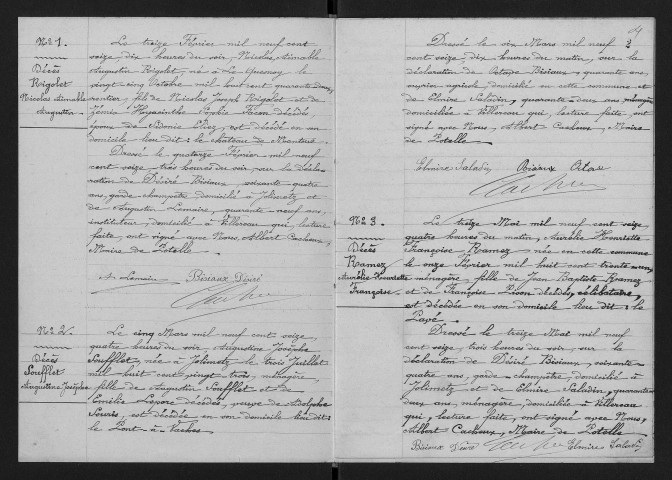 N° 1.
Décès
Rigolet
Nicolas Aimable
Augustin
Le treize Février mil neuf cent
seize, dix heures du soir, Nicolas, Aimable
Augustin Rigolet, né à Le Quesnoy le
vingt cinq Octobre mil huit cent quarante deux,
rentier, fils de Nicolas Joseph Rigolet et de
Hyacinthe Sophie décédés,
époux de est décédé en son
domicile lieu dit: le château de
Dressé le quatorze Février mil neuf
cent seize trois heures du soir sur la décla-
ration de Désiré Bisiaux soixante quatre
ans, garde champêtre domicilié à Jolimetz et
de Augustin Lemaire, quarante neuf ans,
instituteur, domicilié à Villereau qui, lecture
faite, ont signé avec Nous, Albert Cacheux,
Maire de Potelle.
A. Lemaire Bisiaux Désiré
N° 2
Décès
Soufflet
Augustine Josèphe
Le cinq Mars mil neuf cent seize,
quatre heures du soir, Augustine Josèphe
Soufflet, née à Jolimetz le trois Juillet
mil huit cent vingt trois, ménagère,
fille de Augustin Soufflet et de
Emélie décédés, veuve de Adolphe
est décédée en son domicile lieu dit:
le Pont à Vaches
Dressé le six Mars mil neuf
cent seize, dix heures du matin, sur la
déclaration de Octave Bisiaux, quarante ans,
ouvrier agricole domicilié en cette commune et
de Elmire Saladin, quarante deux ans ménagère
domiciliée à Villereau qui, lecture faite, ont
signé avec Nous, Albert Cacheux, Maire
de Potelle.
Elmire Saladin Bisiaux Octave
N° 3.
Décès
Ramez
Aurélie Henriette
Françoise
Le treize Mai mil neuf cent seize,
quatre heures du matin, Aurélie Henriette
Françoise Ramez née en cette commune
le onze Février mil huit cent trente
ménagère, fille de Jean Baptiste Ramez
et de Françoise décédés, célibataire,
est décédée en son domicile lieu dit: le
Pavé
Dressé le treize Mai mil neuf
cent seize, trois heures du soir, sur la
déclaration de Désiré Bisiaux, soixante-
quatre ans, garde-champêtre, domicilié à
Jolimetz et de Elmire Saladin, quarante
deux ans, ménagère, domiciliée à Villereau
qui, lecture faite, ont signé avec Nous,
Albert Cacheux, Maire de Potelle
Bisiaux Désiré Elmire Saladin